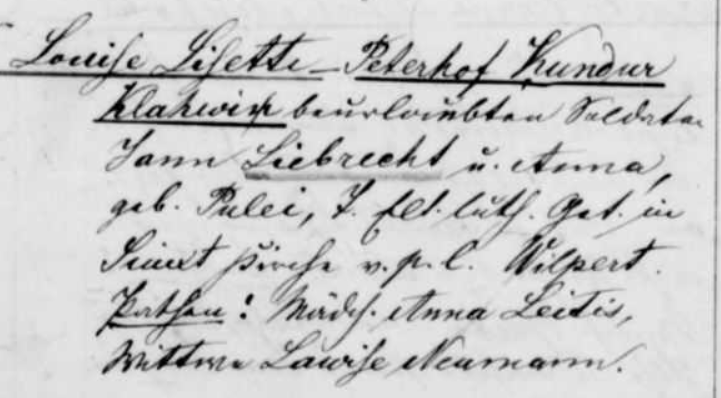 Louise Lisette – Peterhof Kundur
Klahwin beurlaubten Soldaten
Jann Liebrecht u. Anna,
geb. Pulei, T. Elt. luth. Get. in
Siuxt Kirche v. p. l. Wilpert.
Pathen: Mädch. Anna Leitis,
Wittwe Lawise Neumann.